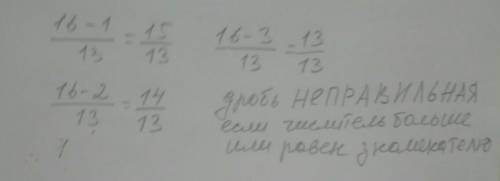 16-1/13 = 15/13
16-3/13 = 13/13
16-2/13 = 14/13
дробь НЕПРАВИЛЬНАЯ
если числитель больше
или равен знаменателю